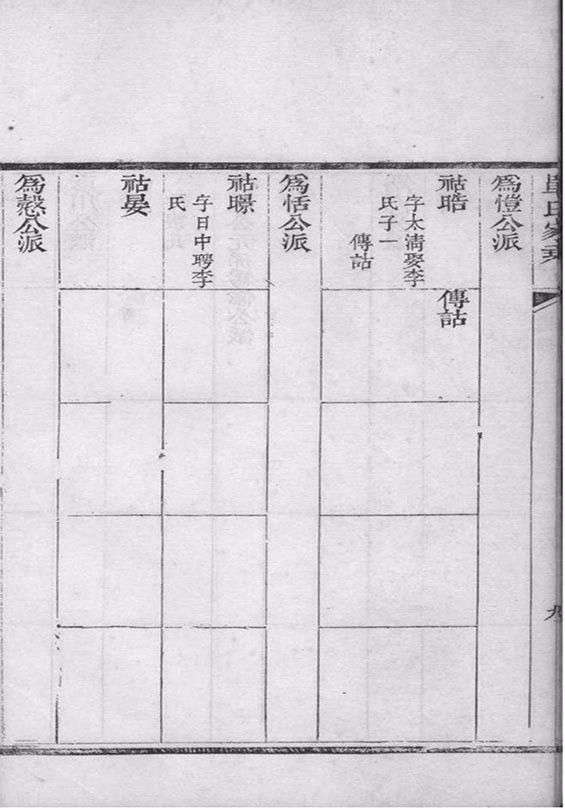 氏家乘
九
爲愷公派
祜晧
字太淸娶李
氏子一
傳詁
傳詁
爲恬公派
祜暻
字日中聘李
氏
祜晏
爲慤公派